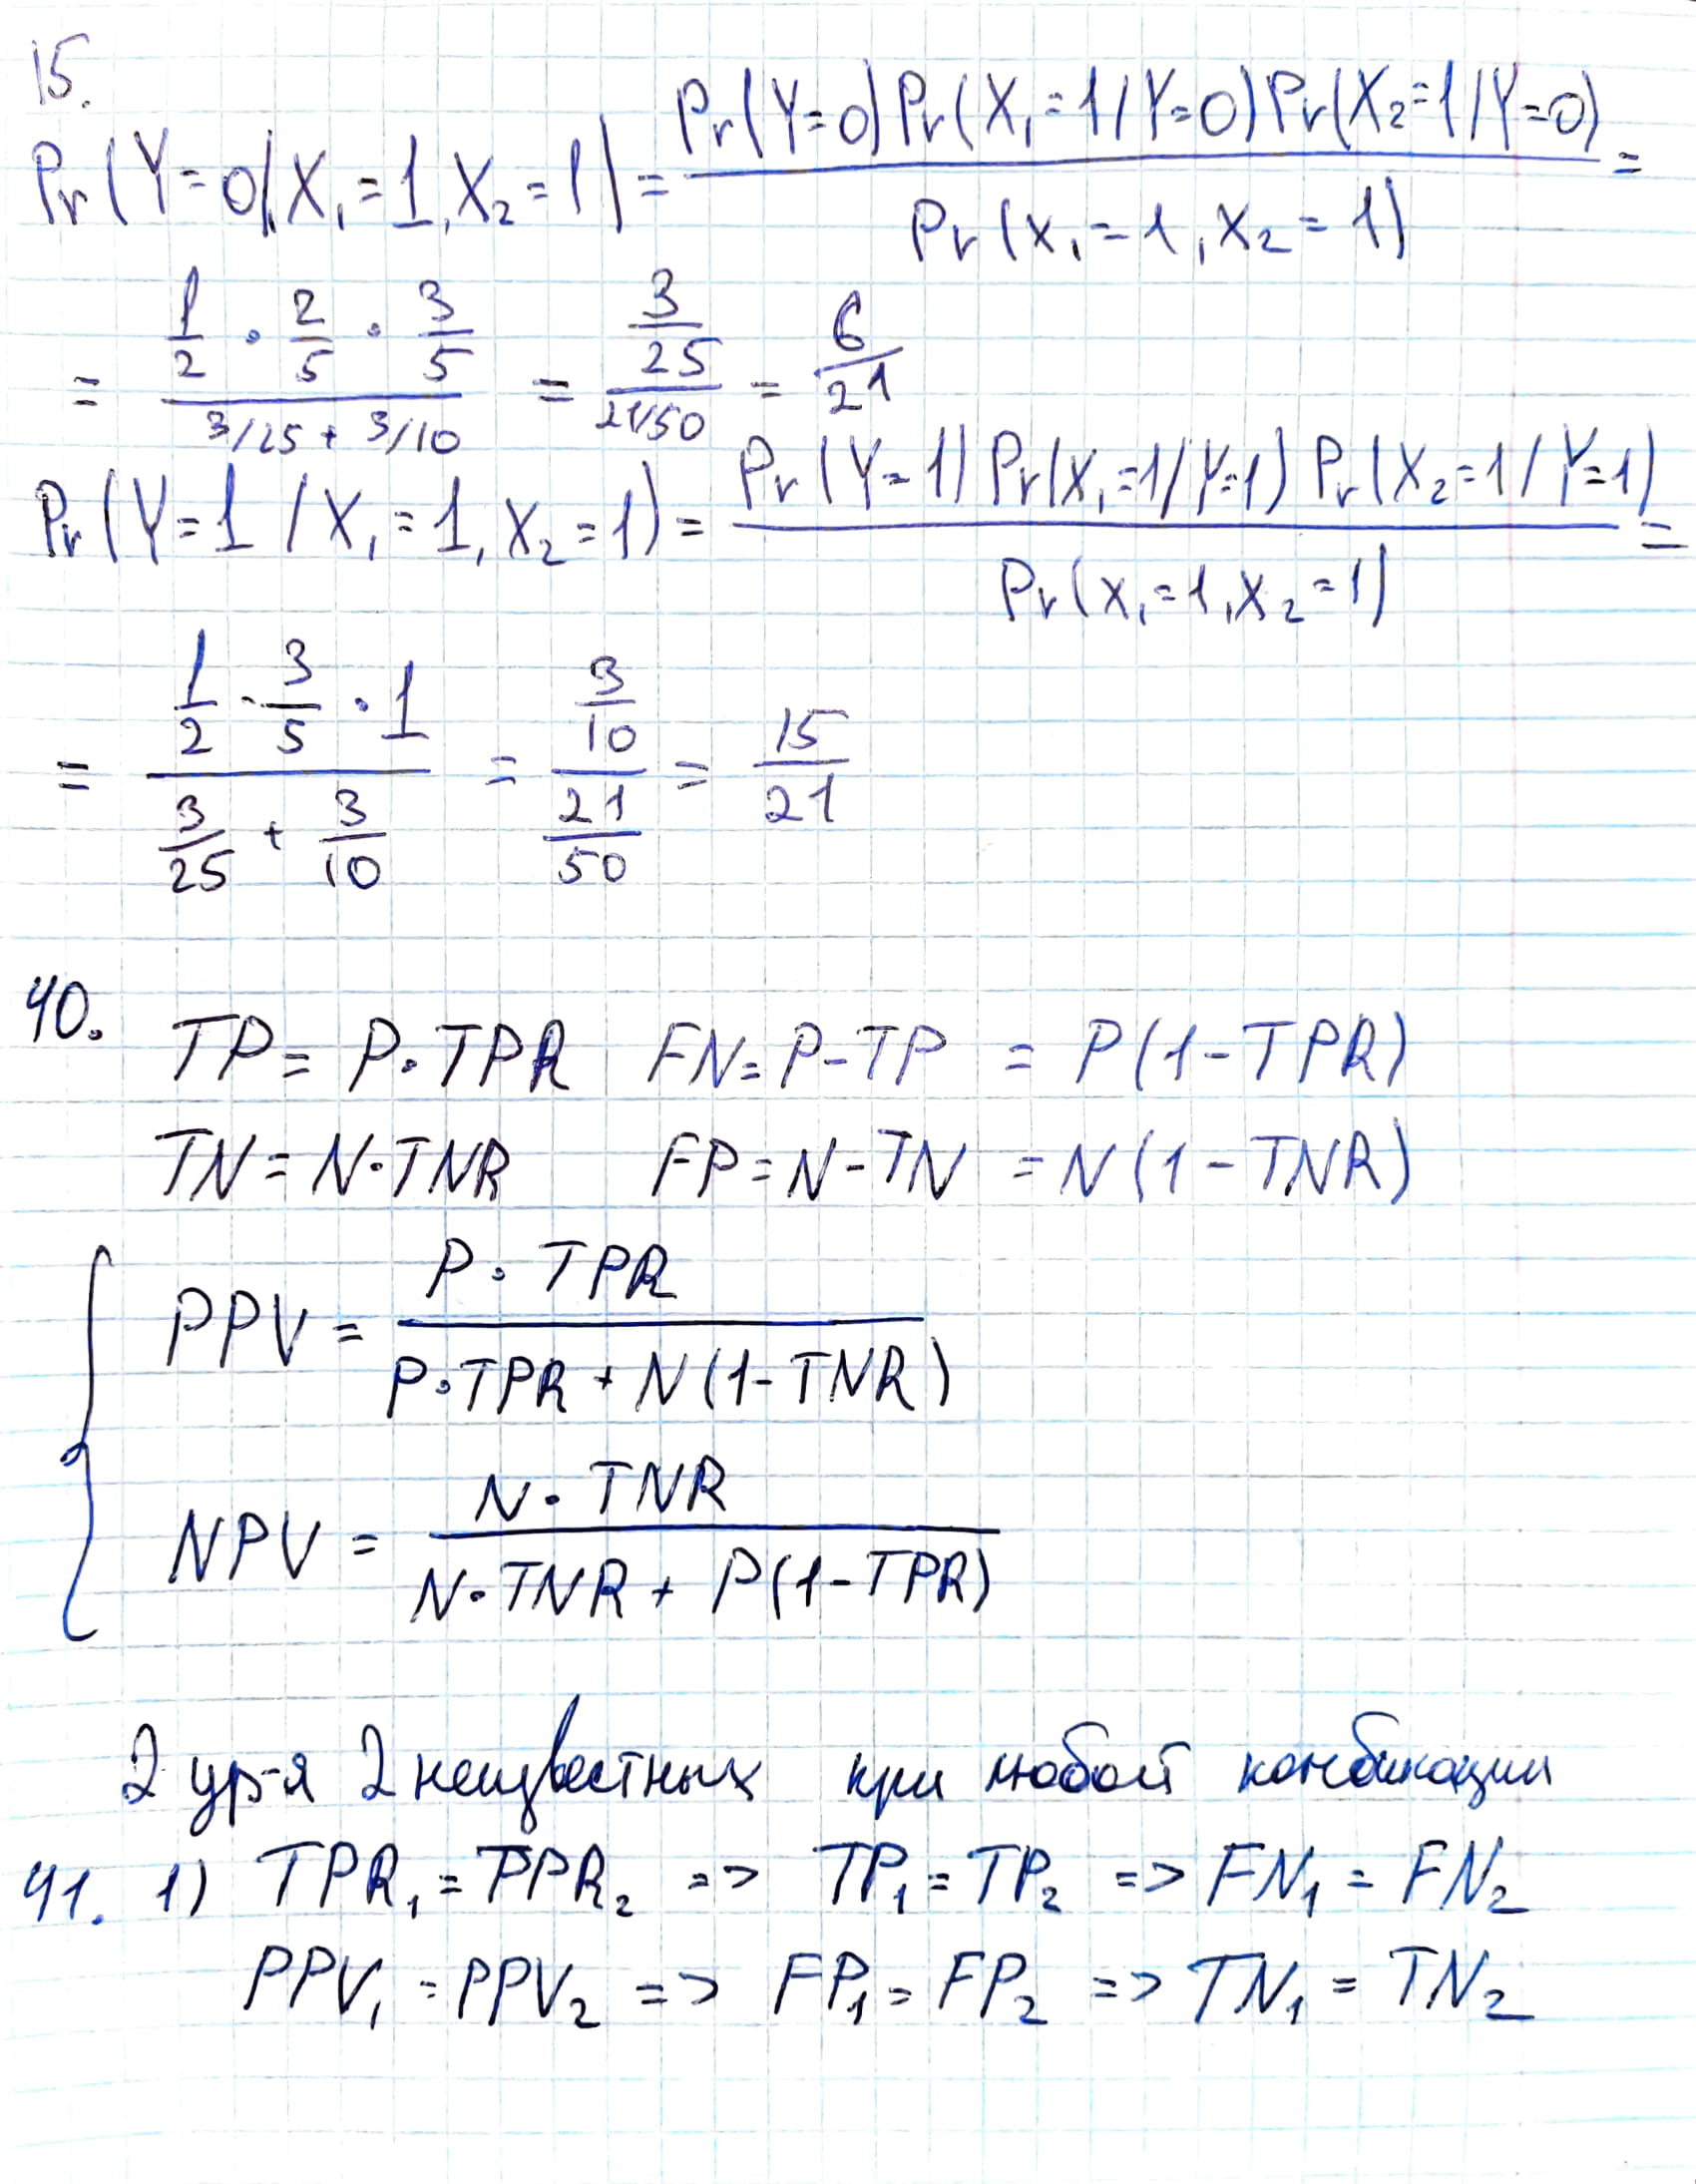 15.
Pr(Y=0/X₁=1, X₂=1) = (Pr(Y=0)Pr(X₁=1/Y=0)Pr(X₂=1/Y=0)) / (Pr(x₁=1, x₂=1)) =
= (1/2 · 2/5 · 3/5) / (3/25 + 3/10) = (3/25) / (21/50) = 6/21
Pr(Y=1/X₁=1, X₂=1) = (Pr(Y=1)Pr(X₁=1/Y=1)Pr(X₂=1/Y=1)) / (Pr(x₁=1, x₂=1)) =
= (1/2 · 3/5 · 1) / (3/25 + 3/10) = (3/10) / (21/50) = 15/21
40. TP = P·TPR FN = P-TP = P(1-TPR)
TN = N·TNR FP = N-TN = N(1-TNR)
{ PPV = (P·TPR) / (P·TPR + N(1-TNR))
NPV = (N·TNR) / (N·TNR + P(1-TPR))
2 ур-я 2 неизвестных при любой комбинации
41. 1) TPR₁ = TPR₂ => TP₁ = TP₂ => FN₁ = FN₂
PPV₁ = PPV₂ => FP₁ = FP₂ => TN₁ = TN₂